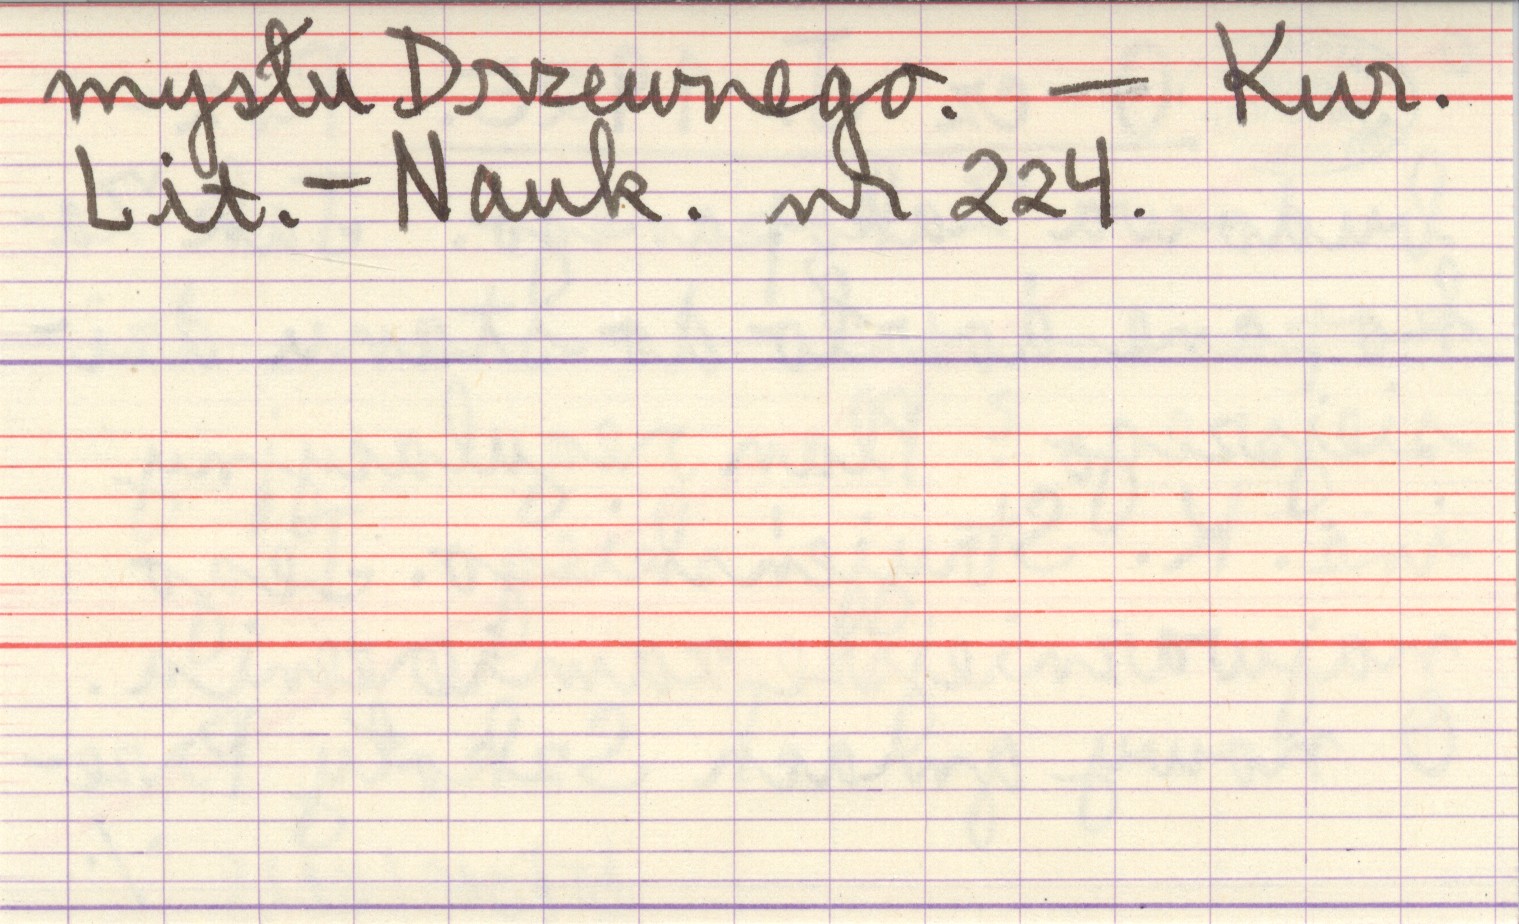 mysłu Drzewnego. — Kur.
Lit.-Nauk. nr 224.